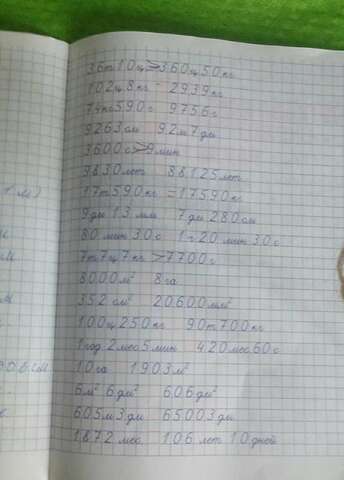 36т10ц > 360ц50кг
102ц8кг - 2939кг
74кг590г 9756г
9263см 92м7дм
3600с > 9мин
9830лет 88125лет
17т590кг = 17590кг
9дм 13мм 7дм 280см
80мин 30с 1ч20мин 30с
7т7ц7кг > 7700г
8000м² 8га
352см² 20600мм²
100ц250кг 90т700кг
1год 2мес5мин 420мес60с
10га 1903м²
6м² 6дм² 606дм²
605м3дм 65003дм
1872мес. 106лет 10дней